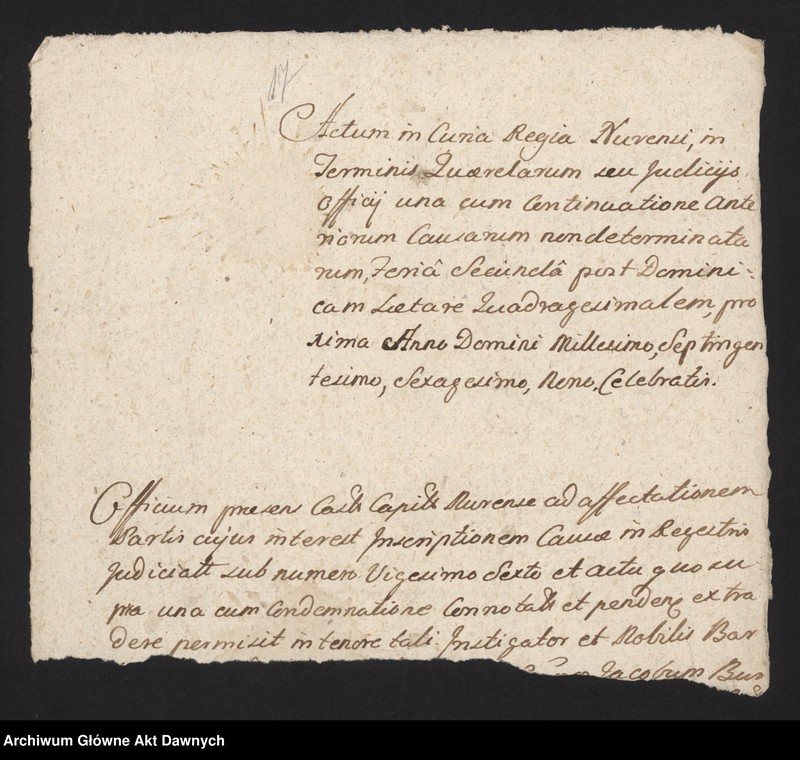 17
Actum in Curia Regia Nurensi, in
Terminis Quærelarum seu Judicijs
Officij una cum Continuatione Ante
riorum Causarum non determinata
rum, Feriâ Secundâ post Domini=
cam Lætare Quadragesimalem, pro
xima Anno Domini Millesimo, Septingen
tesimo, Sexagesimo, Nono. Celebratis.
Officium præsens Castr Capitle Nurense ad affectationem
Partis cujus interest Inscriptionem Causæ in Regestris
Judicialt sub numero Vigesimo Sexto et actu quo su
pra una cum Condemnatione Connotatt et penden extra
dere permisit in tenore tali. Instigator et Nobilis Bar
Jacobum Bur
Archiwum Główne Akt Dawnych